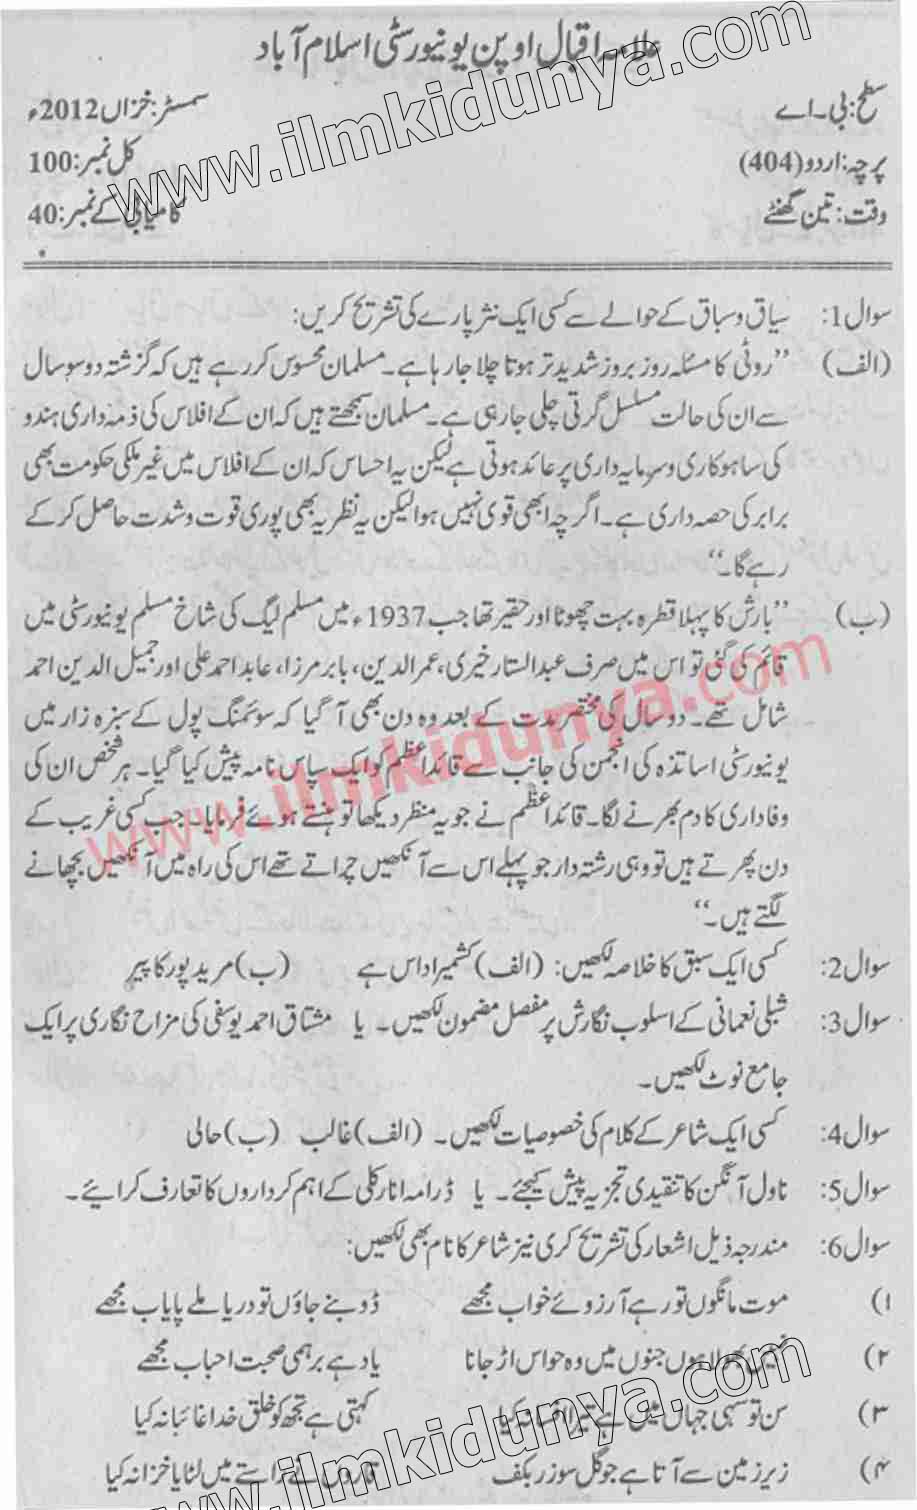 علامہ اقبال اوپن یونیورسٹی اسلام آباد
سطح: بی۔اے سمسٹر: خزاں 2012ء
پرچہ: اردو (404) کل نمبر: 100
وقت: تین گھنٹے کامیابی کے نمبر: 40
www.ilmkidunya.com
سوال 1: سیاق و سباق کے حوالے سے کسی ایک نثر پارے کی تشریح کریں:
(الف) "روٹی کا مسئلہ روز بروز شدید تر ہوتا چلا جا رہا ہے۔ مسلمان محسوس کر رہے ہیں کہ گزشتہ دو سو سال
سے ان کی حالت مسلسل گرتی چلی جا رہی ہے۔ مسلمان سمجھتے ہیں کہ ان کے افلاس کی ذمہ داری ہندو
کی ساہوکاری و سرمایہ داری پر عائد ہوتی ہے لیکن یہ احساس کہ ان کے افلاس میں غیر ملکی حکومت بھی
برابر کی حصہ داری ہے۔ اگرچہ ابھی قوی نہیں ہوا لیکن یہ نظریہ بھی پوری قوت و شدت حاصل کر کے
رہے گا۔"
(ب) "بارش کا پہلا قطرہ بہت چھوٹا اور حقیر تھا جب 1937ء میں مسلم لیگ کی شاخ مسلم یونیورسٹی میں
قائم کی گئی تو اس میں صرف عبدالستار خیری، عمرالدین، بابر مرزا، عابد احمد علی اور جمیل الدین احمد
شامل تھے۔ دو سال کی مختصر مدت کے بعد وہ دن بھی آ گیا کہ سوئمنگ پول کے سبزہ زار میں
یونیورسٹی اساتذہ کی انجمن کی جانب سے قائداعظم کو ایک سپاس نامہ پیش کیا گیا۔ ہر شخص ان کی
وفاداری کا دم بھرنے لگا۔ قائداعظم نے جو یہ منظر دیکھا تو ہنستے ہوئے فرمایا۔ جب کسی غریب کے
دن پھرتے ہیں تو وہی رشتہ دار جو پہلے اس سے آنکھیں چراتے تھے اس کی راہ میں آنکھیں بچھانے
لگتے ہیں۔"
www.ilmkidunya.com
سوال 2: کسی ایک سبق کا خلاصہ لکھیں: (الف) کشمیر اداس ہے (ب) مرید پور کا پیر
سوال 3: شبلی نعمانی کے اسلوب نگارش پر مفصل مضمون لکھیں۔ یا مشتاق احمد یوسفی کی مزاح نگاری پر ایک
جامع نوٹ لکھیں۔
سوال 4: کسی ایک شاعر کے کلام کی خصوصیات لکھیں۔ (الف) غالب (ب) حالی
سوال 5: ناول آنگن کا تنقیدی تجزیہ پیش کیجئے۔ یا ڈرامہ انارکلی کے اہم کرداروں کا تعارف کرائیے۔
سوال 6: مندرجہ ذیل اشعار کی تشریح کری نیز شاعر کا نام بھی لکھیں:
۱) موت مانگوں تو رہے آرزوئے خواب مجھے ڈوبنے جاؤں تو دریا ملے پایاب مجھے
۲) نہیں بھولا ہوں جنوں میں وہ حواس اڑ جانا یاد ہے برہمی صحبت احباب مجھے
۳) سن تو سہی جہاں میں ہے تیرا افسانہ کیا کہتی ہے تجھ کو خلق خدا غائبانہ کیا
۴) زیر زمین سے آتا ہے جو گل سو زر بکف قاروں نے راستے میں لٹایا خزانہ کیا
www.ilmkidunya.com